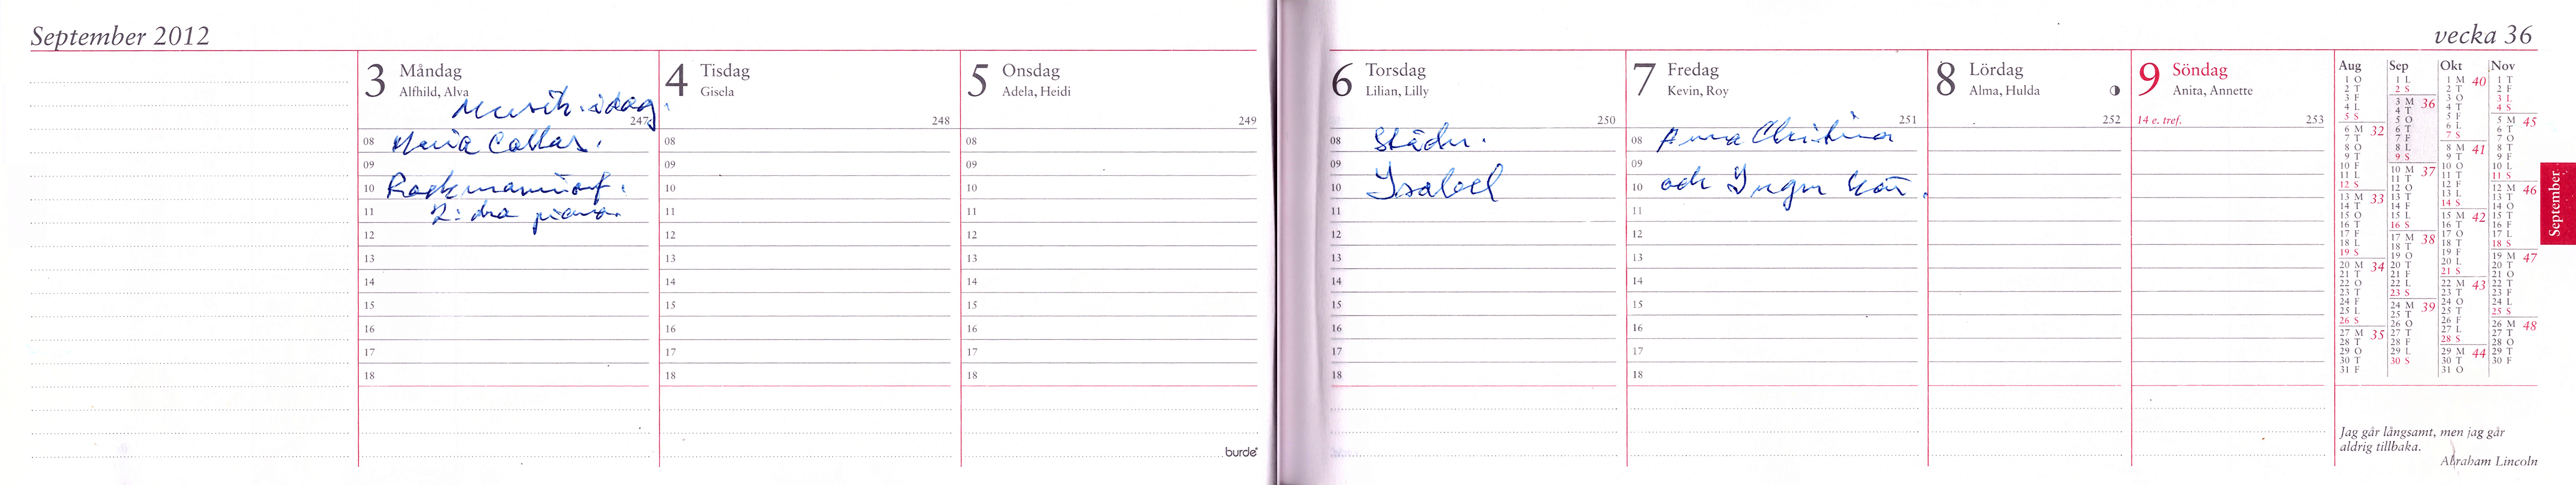 September 2012
3 Måndag
Alfhild, Alva
Musik idag.
247
08 Maria Callas.
09
10 Rachmaninof.
11 2:dra piano.
12
13
14
15
16
17
18
4 Tisdag
Gisela
248
08
09
10
11
12
13
14
15
16
17
18
5 Onsdag
Adela, Heidi
249
08
09
10
11
12
13
14
15
16
17
18
burde
vecka 36
6 Torsdag
Lilian, Lilly
250
08 Städn.
09
10 Isabel
11
12
13
14
15
16
17
18
7 Fredag
Kevin, Roy
251
08 Anna Christina
09
10 och Inger här.
11
12
13
14
15
16
17
18
8 Lördag
Alma, Hulda
252
9 Söndag
Anita, Annette
14 e. tref. 253
Aug
1 O
2 T
3 F
4 L
5 S
6 M 32
7 T
8 O
9 T
10 F
11 L
12 S
13 M 33
14 T
15 O
16 T
17 F
18 L
19 S
20 M 34
21 T
22 O
23 T
24 F
25 L
26 S
27 M 35
28 T
29 O
30 T
31 F
Sep
1 L
2 S
3 M 36
4 T
5 O
6 T
7 F
8 L
9 S
10 M 37
11 T
12 O
13 T
14 F
15 L
16 S
17 M 38
18 T
19 O
20 T
21 F
22 L
23 S
24 M 39
25 T
26 O
27 T
28 F
29 L
30 S
Okt
1 M 40
2 T
3 O
4 T
5 F
6 L
7 S
8 M 41
9 T
10 O
11 T
12 F
13 L
14 S
15 M 42
16 T
17 O
18 T
19 F
20 L
21 S
22 M 43
23 T
24 O
25 T
26 F
27 L
28 S
29 M 44
30 T
31 O
Nov
1 T
2 F
3 L
4 S
5 M 45
6 T
7 O
8 T
9 F
10 L
11 S
12 M 46
13 T
14 O
15 T
16 F
17 L
18 S
19 M 47
20 T
21 O
22 T
23 F
24 L
25 S
26 M 48
27 T
28 O
29 T
30 F
September
Jag går långsamt, men jag går
aldrig tillbaka.
Abraham Lincoln